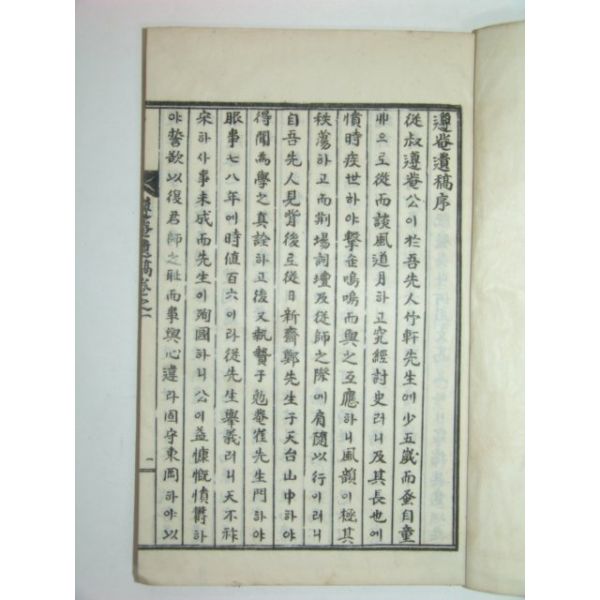 遵菴遺稿序
從叔遵菴公이於吾先人竹軒先生에少五歲而蚤自童
丱으로從而談風道月하고究經討史러니及其長也에
憤時疾世하야擊缶嗚嗚而與之互應하니風韻이極其
秩蕩하고而荆場詞壇及從師之際에肩隨以行이러니
自吾先人見背後로從日新齋鄭先生于天台山中하야
得聞爲學之眞詮하고後又執贄于勉菴崔先生門하야
服事七八年에時値百六이라從先生擧義러니天不祚
宋하사事未成而先生이殉國하니公이益慷慨憤欝하
야誓欲以復君師之耻而事與心違라固守東岡하야以
遵菴遺稿卷之一
一